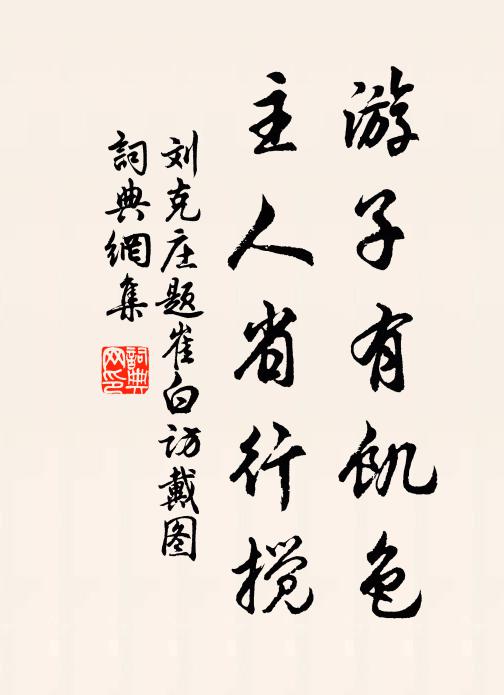 游子有飢色
主人省行搅
刘克庄题崔白访戴图
詞典網集
詞典网印